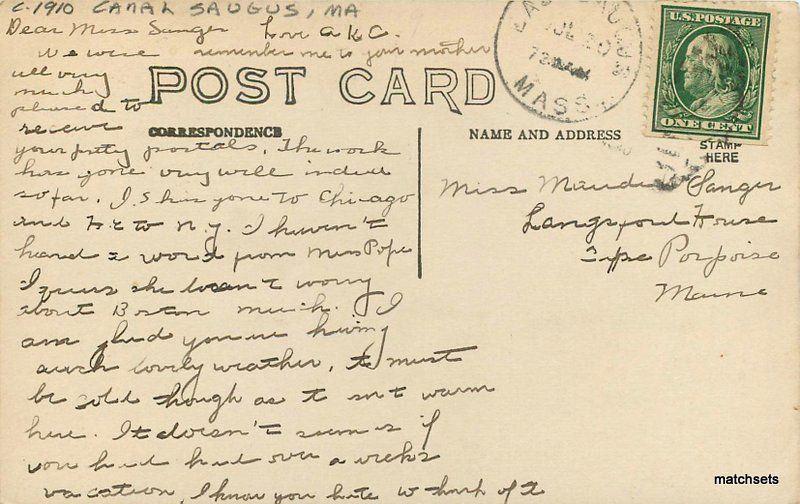 c-1910 CANAL SAUGUS, MA
Dear Miss Sanger Love A K C.
We were remember me to your mother
all very
much
pleased to
receive
your pretty postals. The work
has gone very well indeed
so far. I.S has gone to Chicago
and to N.Y. I haven't
heard a word from Miss Pope
I guess she doesn't worry
about Boston much. I
am glad you're having
such lovely weather, it must
be cold though as it isn't warm
here. It doesn't seem as if
you had had over a week's
vacation, I know you hate to think of it
POST CARD
CORRESPONDENCE
NAME AND ADDRESS
STAMP
HERE
U.S. POSTAGE
ONE CENT
EAST SAUGUS
JUL 20
MASS.
Miss Maude Sanger
Langsford House
Cape Porpoise
Maine
matchsets